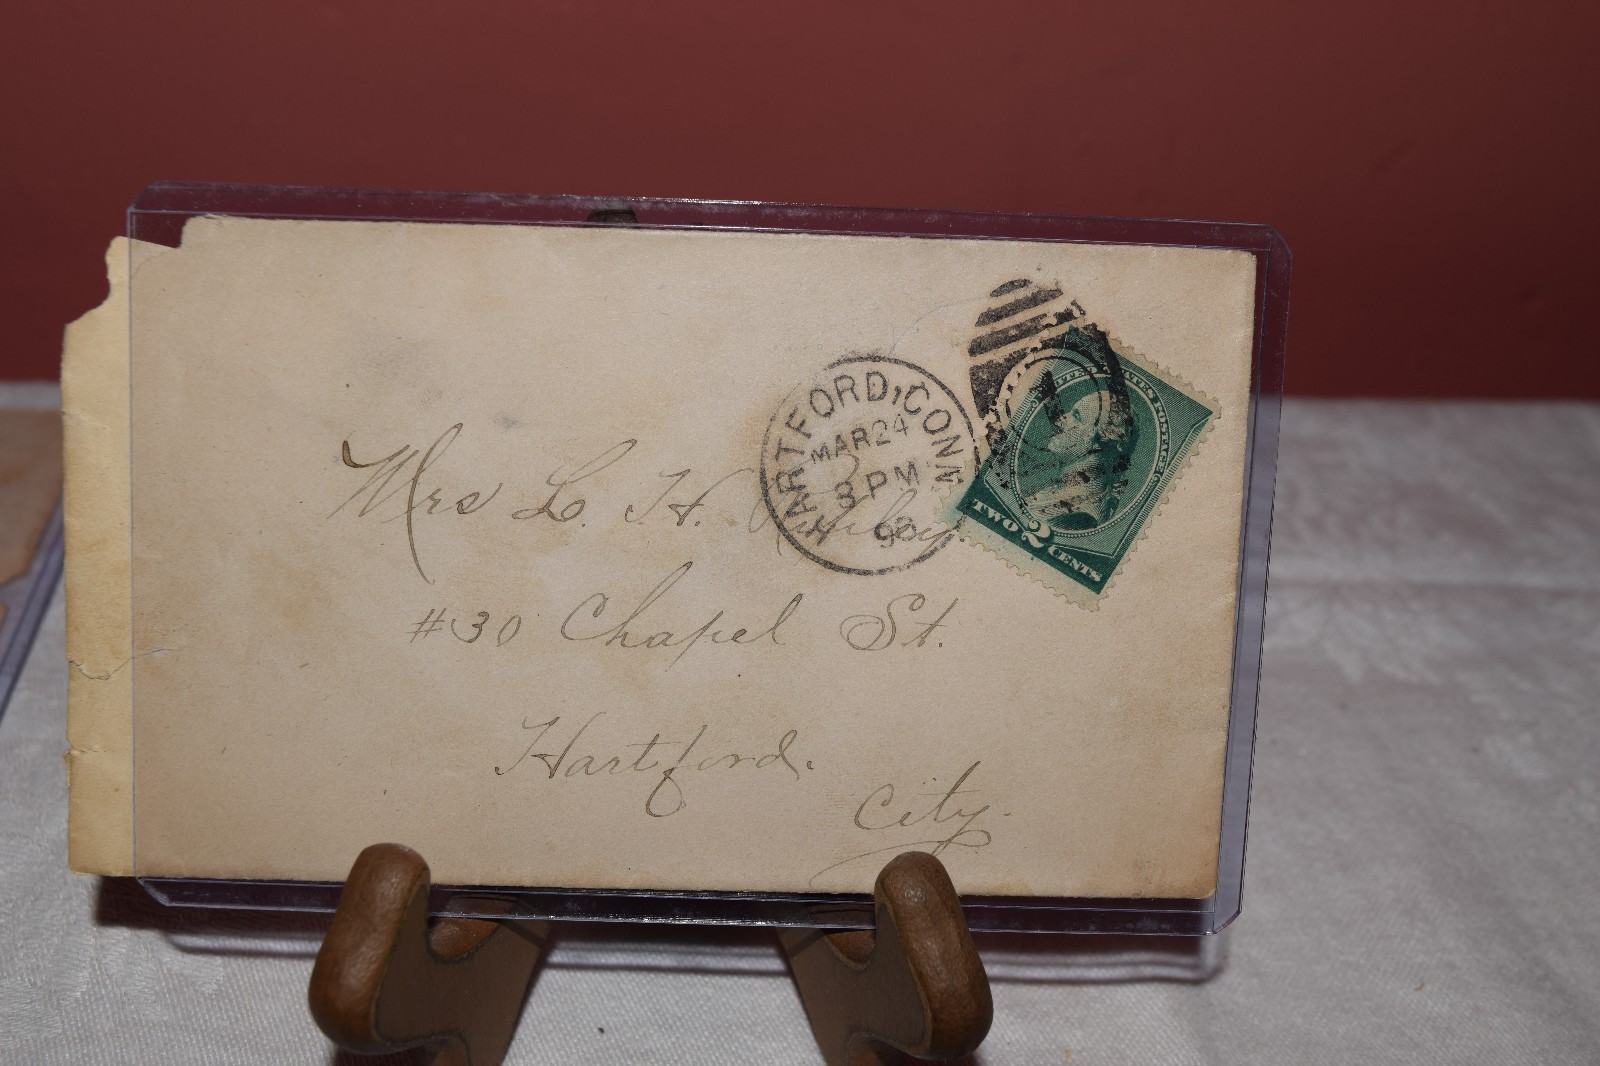 HARTFORD, CONN.
MAR 24
3 PM
UNITED STATES POSTAGE
TWO 2 CENTS
Mrs L. H.
#30 Chapel St.
Hartford.
City.